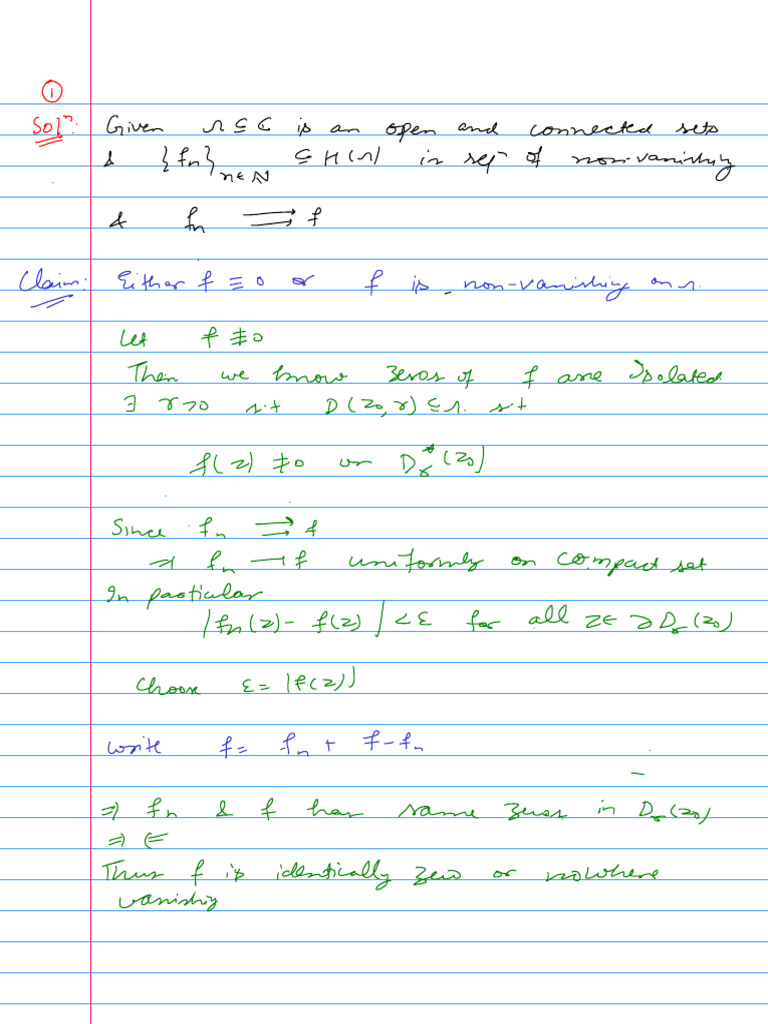 ①
Solⁿ: Given Ω ⊆ ℂ is an open and connected sets
& {fₙ}ₙ∈ℕ ⊆ H(Ω) in seqⁿ of non-vanishing
& fₙ ⇉ f
Claim: Either f ≡ 0 or f is non-vanishing on Ω.
Let f ≢ 0
Then we know zeros of f are isolated
∃ r>0 s.t D(z₀, r) ⊆ Ω. s.t
f(z) ≠ 0 on Dᵣ*(z₀)
Since fₙ ⇉ f
⇒ fₙ → f uniformly on compact set
In particular
|fₙ(z) - f(z)| < ε for all z ∈ ∂Dᵣ(z₀)
Choose ε = |f(z)|
write f = fₙ + f - fₙ
⇒ fₙ & f has same zeros in Dᵣ(z₀)
⇒ ⇐
Thus f is identically zero or nowhere
vanishing